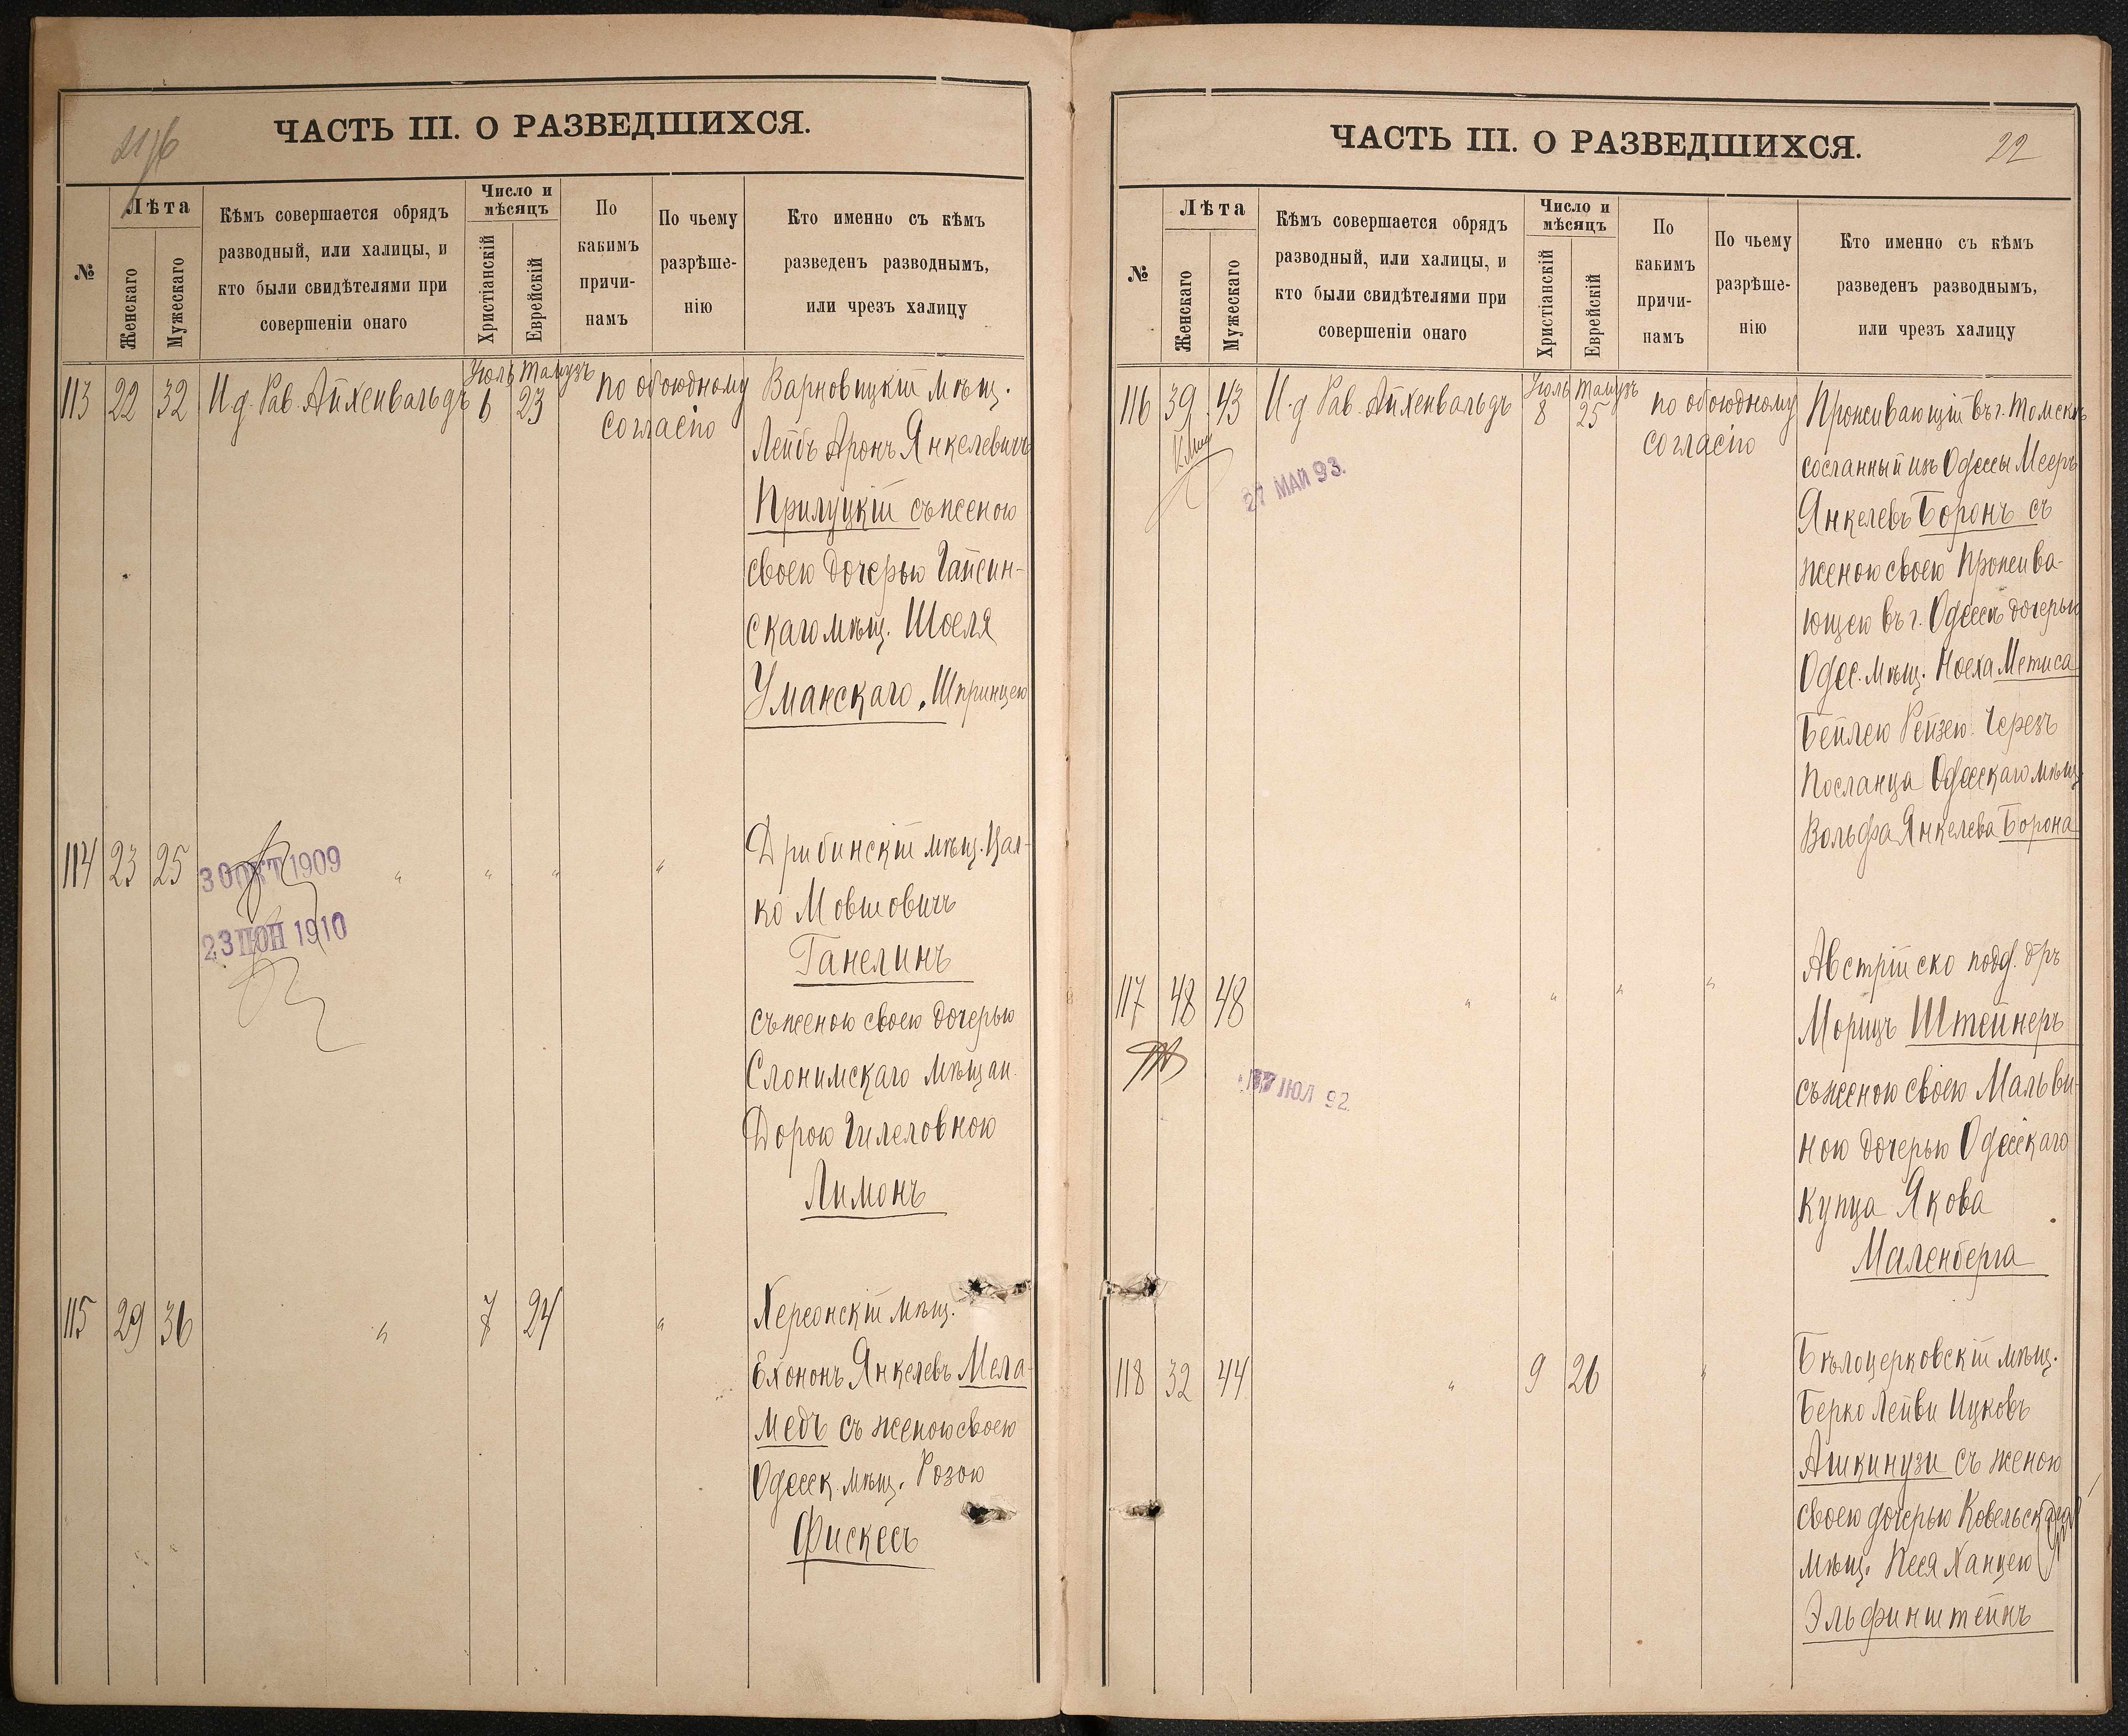 ЧАСТЬ III. О РАЗВЕДШИХСЯ.
№
Лѣта
Женскаго
Мужескаго
Кѣмъ совершается обрядъ
разводный, или халицы, и
кто были свидѣтелями при
совершеніи онаго
Число и
мѣсяцъ
Христіанскій
Еврейскій
По
какимъ
причи-
намъ
По чьему
разрѣше-
нію
Кто именно съ кѣмъ
разведенъ разводнымъ,
или чрезъ халицу
113 22 32 И.д. Рав. Айхенвальдъ Іюль 6 Тамузъ 23 по обоюдному
согласію
Варновицкій мѣщ.
Лейбъ Аронъ Янкелевичъ
Прилуцкій съ женою
своею дочерью Гайсин-
скаго мѣщ. Шоеля
Уманскаго, Шпринцею
114 23 25 " " " "
30 ОКТ 1909
23 ІЮН 1910
Дрибинскій мѣщ. Цал-
ко Мовшовичъ
Ганелинъ
съ женою своею дочерью
Слонимскаго мѣщан.
Дорою Гилеловною
Лимонъ
115 29 36 " 7 24 "
Херсонскій мѣщ.
Ехононъ Янкелевъ Мела-
медъ съ женою своею
Одесск. мѣщ. Розою
Фискесъ
ЧАСТЬ III. О РАЗВЕДШИХСЯ.
22
№
Лѣта
Женскаго
Мужескаго
Кѣмъ совершается обрядъ
разводный, или халицы, и
кто были свидѣтелями при
совершеніи онаго
Число и
мѣсяцъ
Христіанскій
Еврейскій
По
какимъ
причи-
намъ
По чьему
разрѣше-
нію
Кто именно съ кѣмъ
разведенъ разводнымъ,
или чрезъ халицу
116 39 43 И.д Рав. Айхенвальдъ Іюль 8 Тамузъ 25 по обоюдному
согласію
27 МАЙ 93.
Проживающій въ г. Томскѣ
сосланный изъ Одессы Мееръ
Янкелевъ Боронъ съ
женою своею прожива-
ющею въ г. Одессѣ дочерью
Одес. мѣщ. Ноеха Метиса
Бейлею Рейзею. Черезъ
Посланца Одесскаго мѣщ.
Вольфа Янкелева Борона
117 48 48 " " " "
ІЮЛ 92
Австрійско подд. д-ръ
Морицъ Штейнеръ
съ женою своею Мальви-
ною дочерью Одесскаго
купца Якова
Маленберга
118 32 44 " 9 26 "
Бѣлоцерковскій мѣщ.
Берко Лейви Ицковъ
Ашкинузи съ женою
своею дочерью Ковельскаго
мѣщ. Песя Ханцею
Эльфинштейнъ